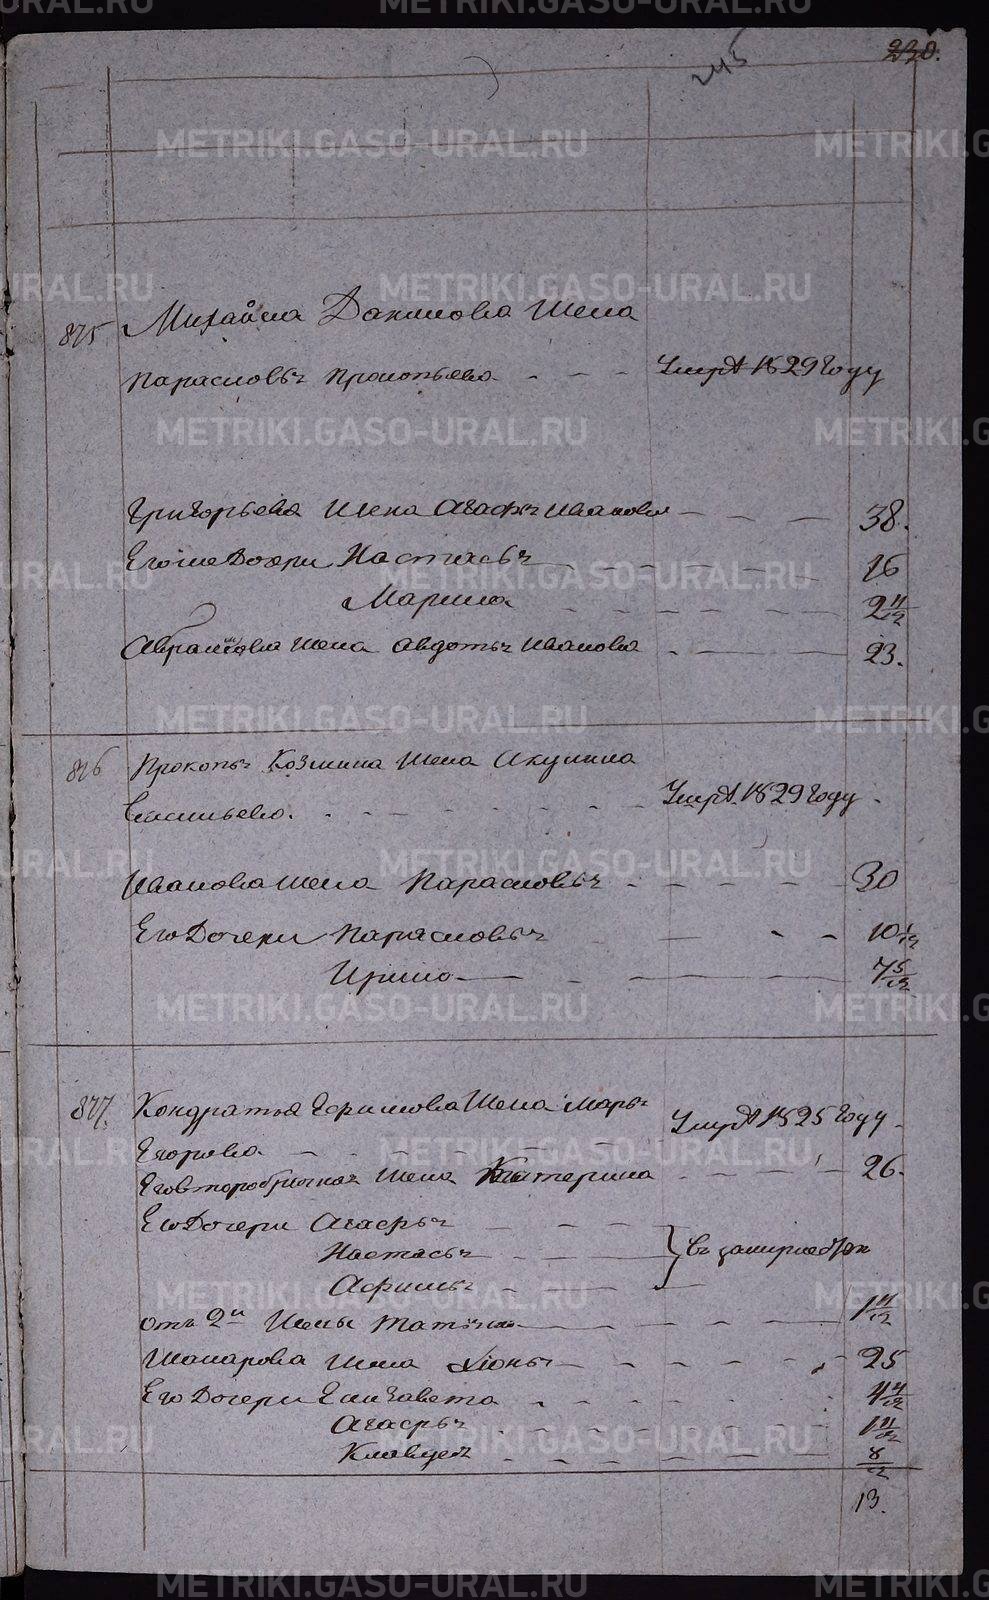 245
230.
875 Михайла Данилова жена
Парасковья Прокопьева - - - Умре 1829 году
Григорьева жена Агафья Иванова - - - 38.
Его же дочери Настасья - - - 16
Марина - - - 2 11/12
Абрамова жена Авдотья Иванова - - - 23.
876 Прокопья Козмина жена Акулина
Васильева. - - - Умре 1829 году.
Иванова жена Парасковья - - - 30
Его дочери Парасковья - - - 10 1/12
Ирина - - - 7 5/12
877. Кондратья Ефимова жена Марья
Егорова. - - - Умре 1825 году.
Его второбрачная жена Катерина - - - 26.
Его дочери Агафья - - -
Настасья - - - въ замужестве
Афимья - - -
отъ 2й жены Татьяна - - - 1 11/12
Макарова жена Хионья - - - 25
Его дочери Елизавета - - - 4 4/12
Агафья - - - 1 11/12
Клавдея - - - 8/12
13.
METRIKI.GASO-URAL.RU